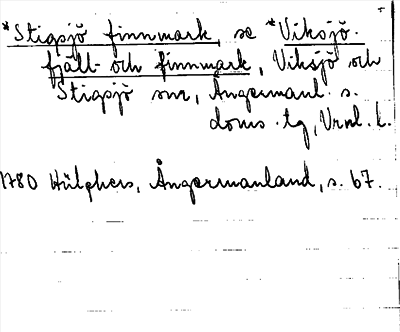 *Stigsjö finnmark, se *Viksjö
fjäll- och finnmark, Viksjö och
Stigsjö snr, Ångermanl. s.
doms.tg, Vrnl. l.
1780 Hülphers, Ångermanland, s. 67.